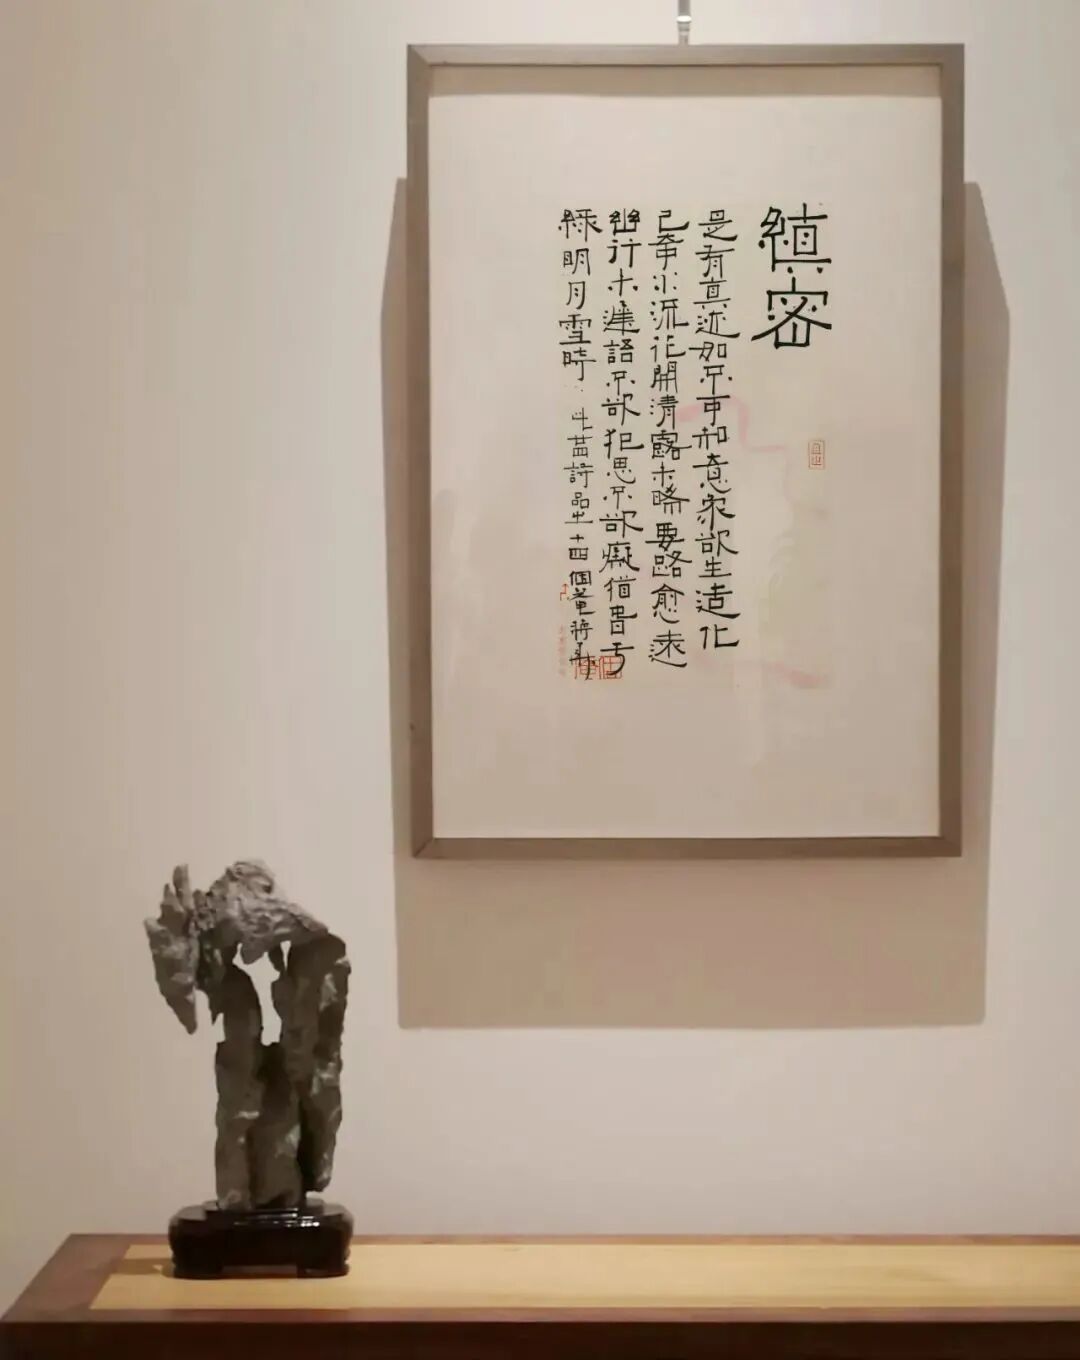 縝密
是有真迹如不可知意象欲生造化
已奇水流花開清露未晞要路愈遠
幽行未遲語不欲犯思不欲癡猶春于
綠明月雪時 詩品之十四